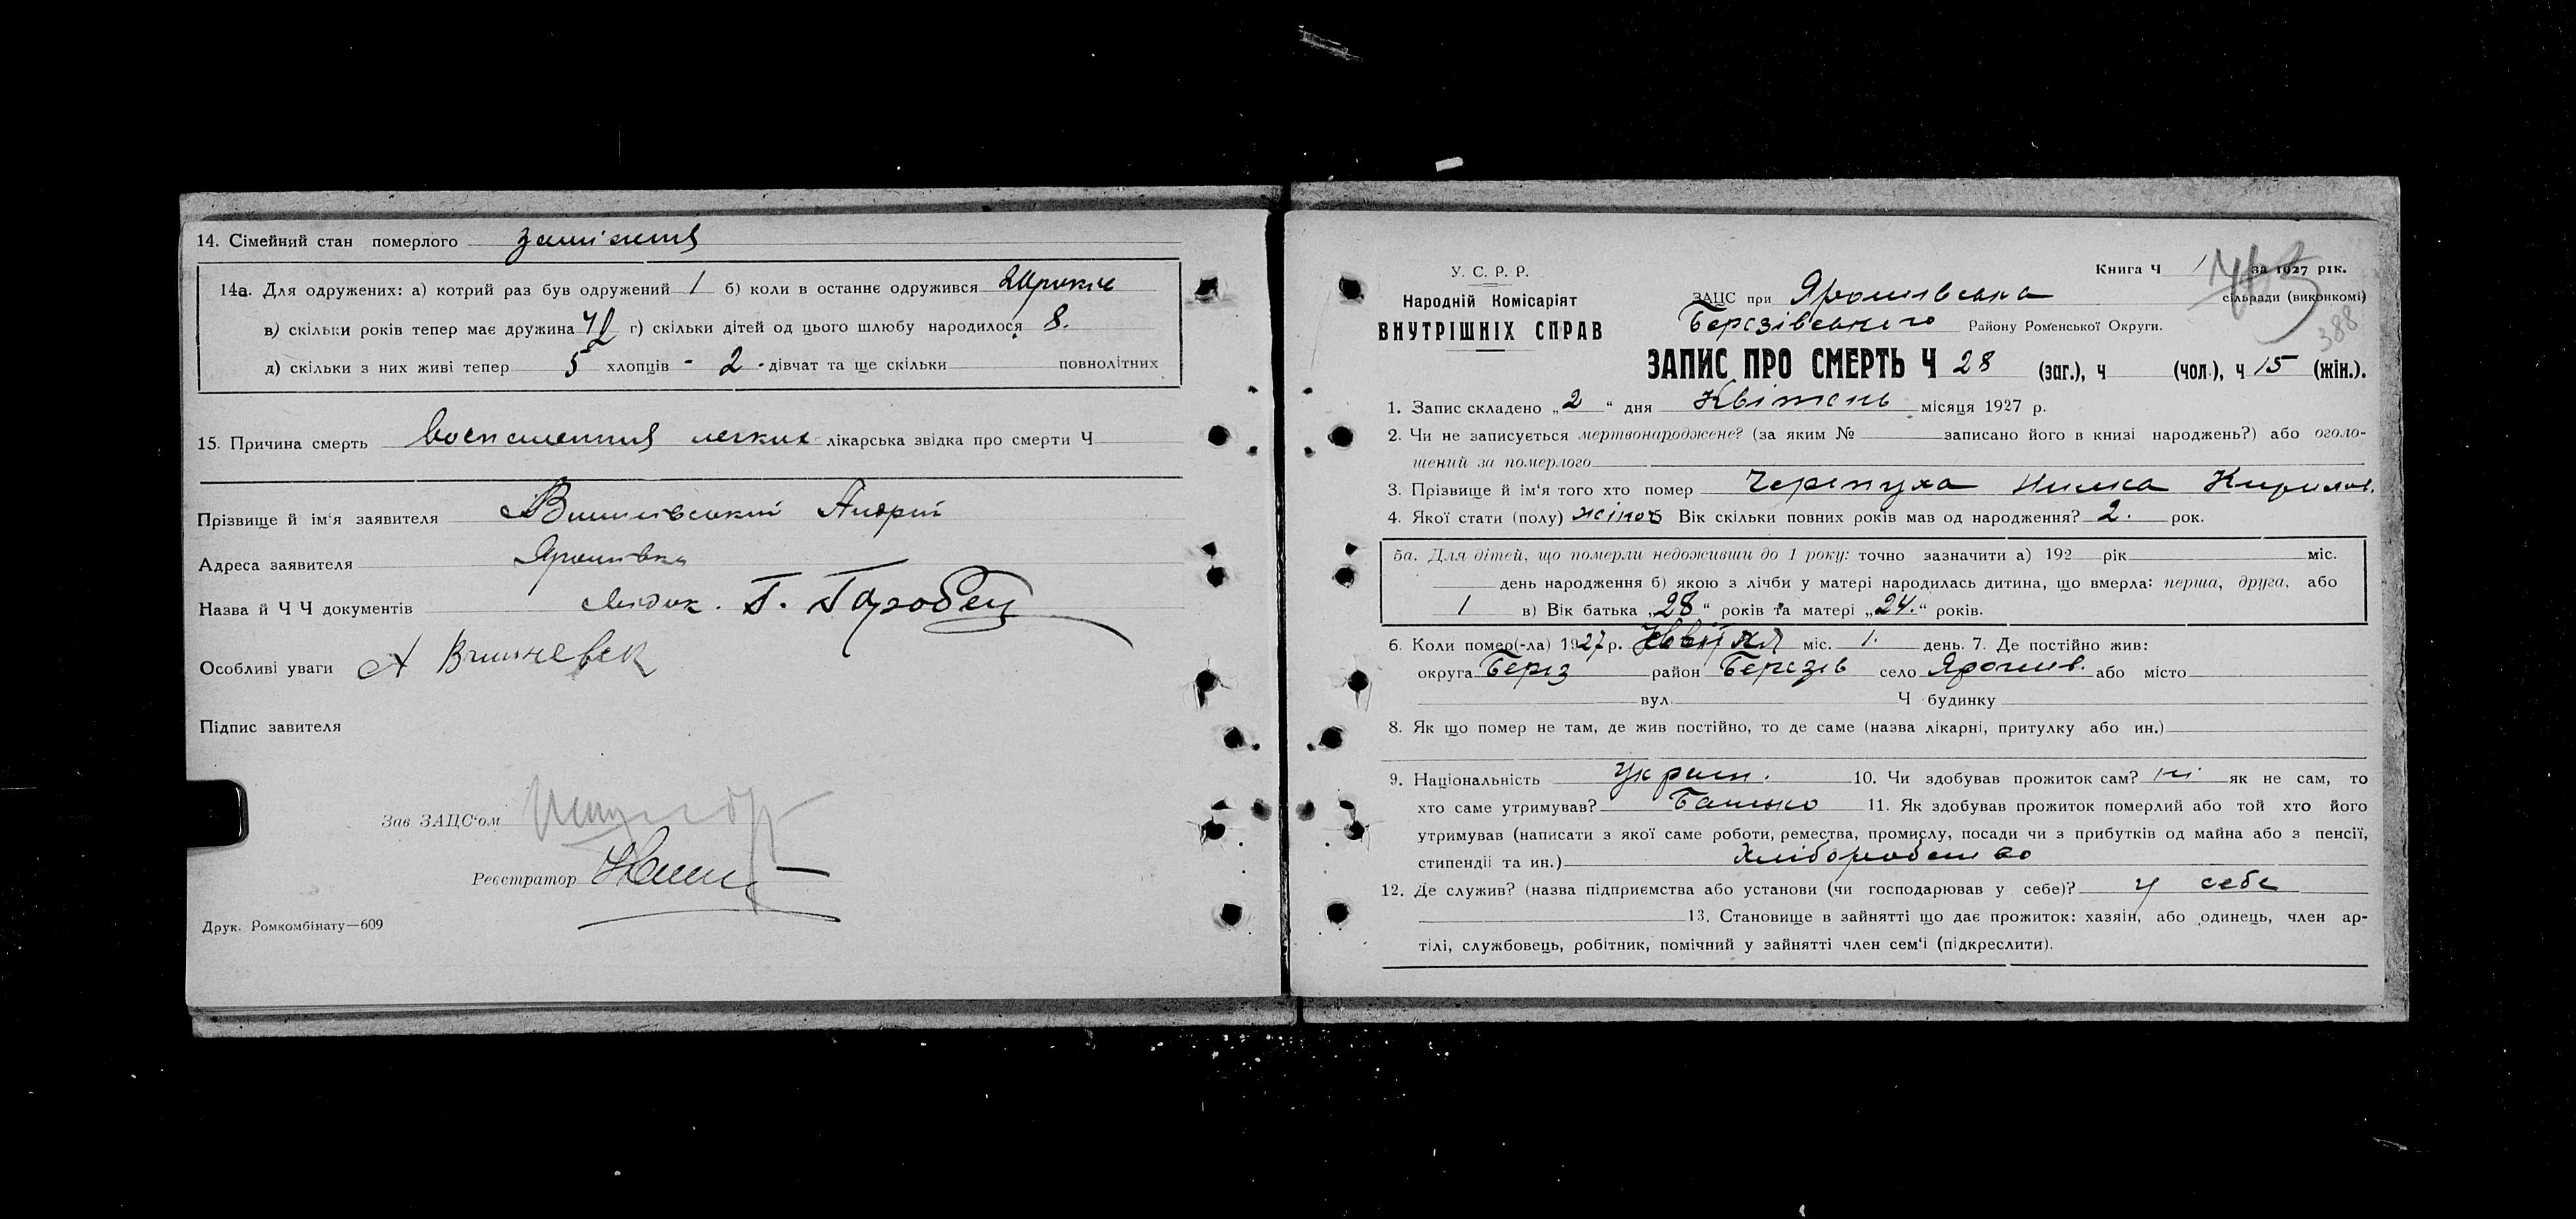 14. Сімейний стан померлого заміжня
14а. Для одружених: а) котрий раз був одружений 1 б) коли в останнє одружився
в) скільки років тепер має дружина г) скільки дітей од цього шлюбу народилося 8.
д) скільки з них живі тепер 5 хлопців - 2 - дівчат та ще скільки повнолітних
15. Причина смерть воспаления легких лікарська звідка про смерти Ч
Прізвище й ім'я заявителя Вишнівський Андрій
Адреса заявителя Ярошівка
Назва й Ч Ч документів
Особливі уваги А Вишневск
Підпис завителя
Зав ЗАЦС'ом
Реєстратор
Друк. Ромкомбінату—609
Книга Ч 1 за 1927 рік.
У. С. Р. Р.
Народній Комісаріят
ВНУТРІШНІХ СПРАВ
ЗАЦС при Ярошівська сільради (виконкомі)
Березівського Району Роменської Округи.
388
ЗАПИС ПРО СМЕРТЬ Ч 28 (заг.), ч (чол.), ч 15 (жін.).
1. Запис складено „2" дня Квітень місяця 1927 р.
2. Чи не записується мертвонароджене? (за яким № записано його в книзі народжень?) або оголо-
шений за померлого
3. Прізвище й ім'я того хто помер Черепуха Кирилов.
4. Якої стати (полу) жіноч Вік скільки повних років мав од народження? 2. рок.
5а. Для дітей, що померли недоживши до 1 року: точно зазначити а) 192 рік міс.
день народження б) якою з лічби у матері народилась дитина, що вмерла: перша, друга, або
1 в) Вік батька „28" років та матері „24." років.
6. Коли помер(-ла) 1927 р. Квітня міс. 1. день. 7. Де постійно жив:
округа Берез район Березів село Ярошів. або місто
вул. Ч будинку
8. Як що помер не там, де жив постійно, то де саме (назва лікарні, притулку або ин.)
9. Національність Украин. 10. Чи здобував прожиток сам? ні як не сам, то
хто саме утримував? Батько 11. Як здобував прожиток померлий або той хто його
утримував (написати з якої саме роботи, ремества, промислу, посади чи з прибутків од майна або з пенсії,
стипендії та ин.) хліборобство
12. Де служив? (назва підприємства або установи (чи господарював у себе)? у себе
13. Становище в зайнятті що дає прожиток: хазяін, або одинець, член ар-
тілі, службовець, робітник, помічний у зайнятті член сем'і (підкреслити).